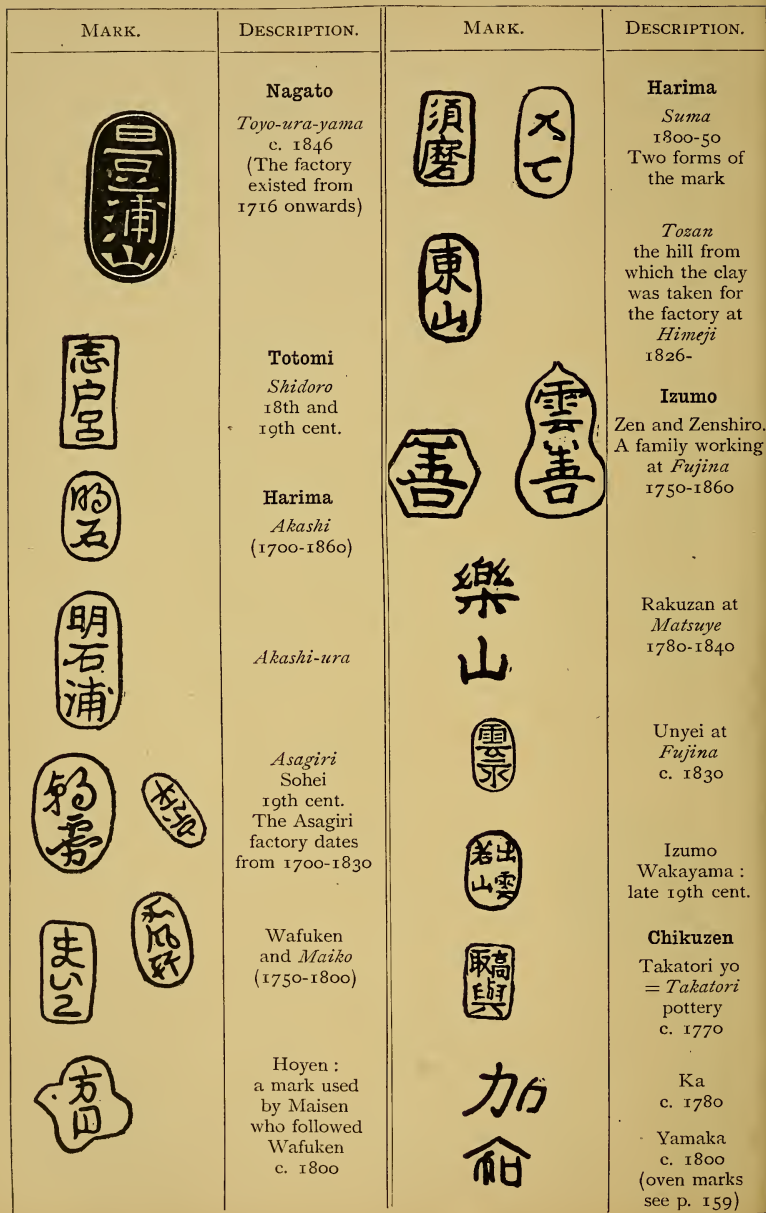 MARK.
DESCRIPTION.
Nagato
Toyo-ura-yama
c. 1846
(The factory
existed from
1716 onwards)
豊浦山
Totomi
Shidoro
18th and
19th cent.
志戸呂
Harima
Akashi
(1700-1860)
明石
Akashi-ura
明石浦
Asagiri
Sohei
19th cent.
The Asagiri
factory dates
from 1700-1830
朝霧
Wafuken
and Maiko
(1750-1800)
まいこ
和風軒
Hoyen :
a mark used
by Maisen
who followed
Wafuken
c. 1800
MARK.
DESCRIPTION.
Harima
Suma
1800-50
Two forms of
the mark
須磨
Tozan
the hill from
which the clay
was taken for
the factory at
Himeji
1826-
東山
Izumo
Zen and Zenshiro.
A family working
at Fujina
1750-1860
善
雲善
Rakuzan at
Matsuye
1780-1840
樂山
Unyei at
Fujina
c. 1830
雲永
Izumo
Wakayama :
late 19th cent.
出雲
若山
Chikuzen
Takatori yo
= Takatori
pottery
c. 1770
高
取
Ka
c. 1780
加
Yamaka
c. 1800
(oven marks
see p. 159)